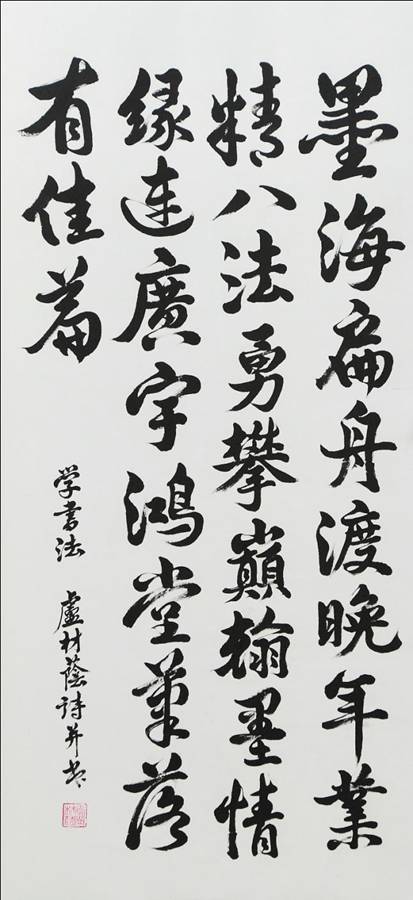 墨海扁舟渡晚年業
精八法勇攀巔翰墨情
缘連廣宇鴻堂筆落
有佳篇
学書法 盧材蔭詩并書